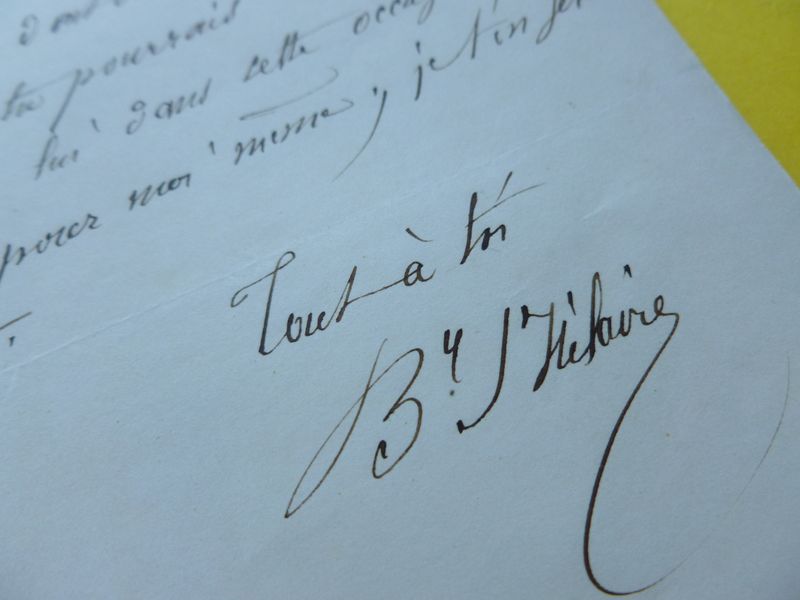 pourrais
lui dans cette
pour moi même, je t'en
Tout à toi
By St Hilaire